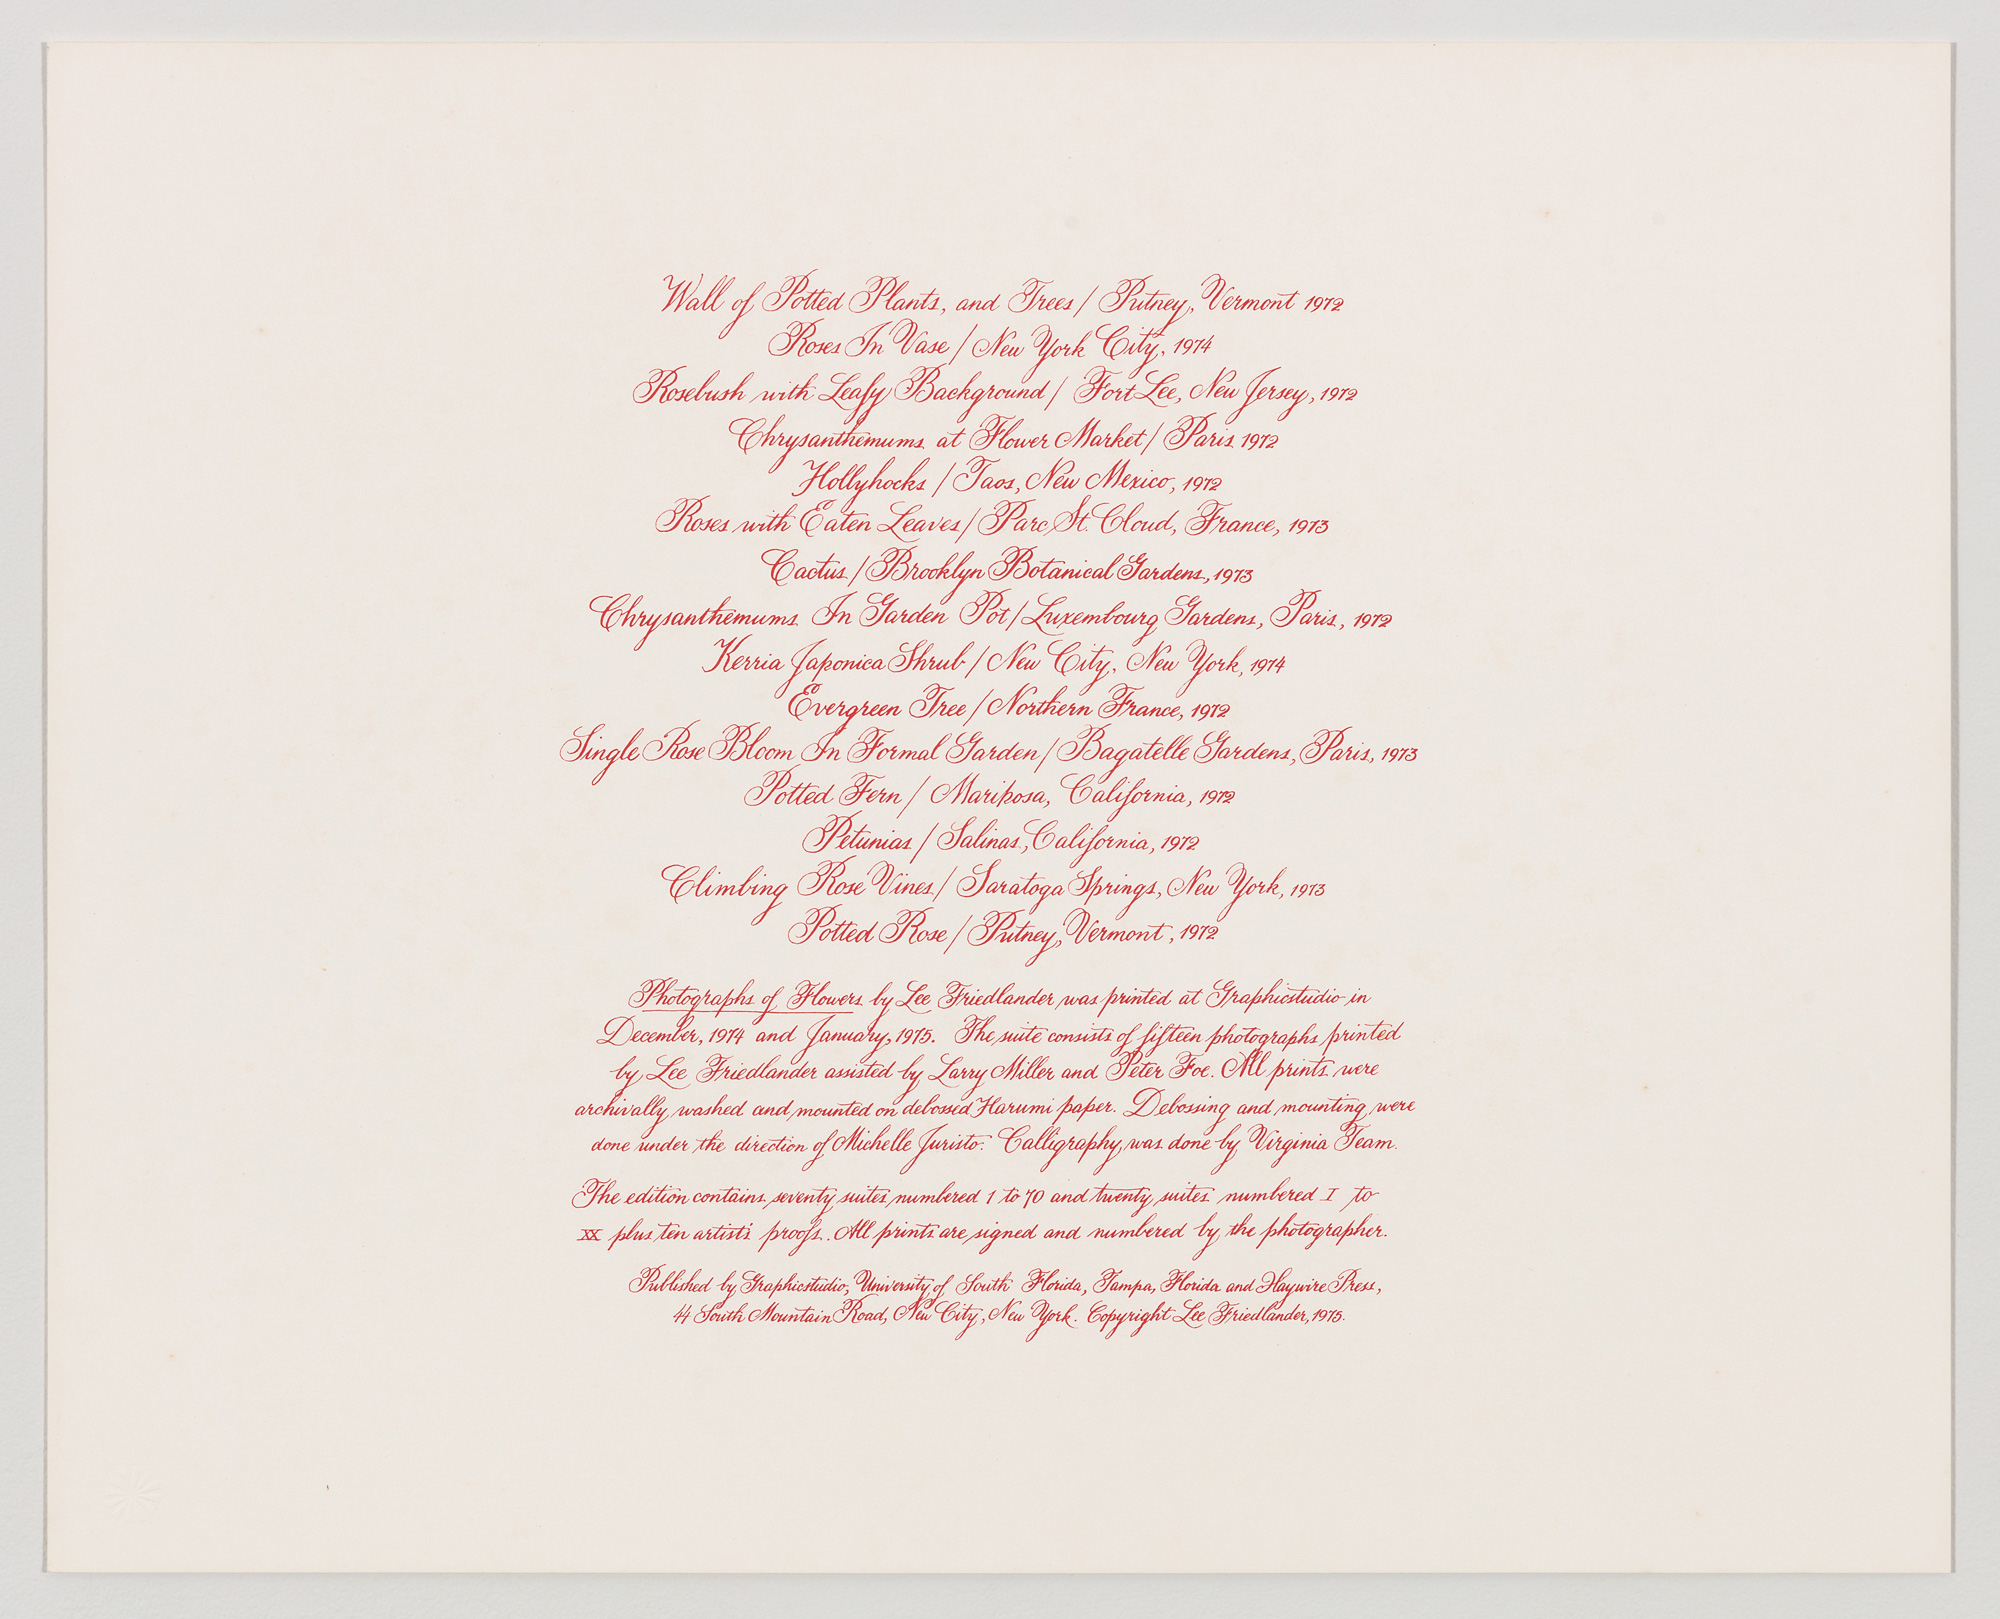 Wall of Potted Plants, and Trees / Putney, Vermont 1972
Roses In Vase / New York City, 1974
Rosebush with Leafy Background / Fort Lee, New Jersey, 1972
Chrysanthemums at Flower Market / Paris 1972
Hollyhocks / Taos, New Mexico, 1972
Roses with Eaten Leaves / Parc St. Cloud, France, 1973
Cactus / Brooklyn Botanical Gardens, 1973
Chrysanthemums In Garden Pot / Luxembourg Gardens, Paris, 1972
Kerria Japonica Shrub / New City, New York, 1974
Evergreen Tree / Northern France, 1972
Single Rose Bloom In Formal Garden / Bagatelle Gardens, Paris, 1973
Potted Fern / Mariposa, California, 1972
Petunias / Salinas, California, 1972
Climbing Rose Vines / Saratoga Springs, New York, 1973
Potted Rose / Putney, Vermont, 1972
Photographs of Flowers by Lee Friedlander was printed at Graphicstudio in
December, 1974 and January, 1975. The suite consists of fifteen photographs printed
by Lee Friedlander assisted by Larry Miller and Peter Foe. All prints were
archivally washed and mounted on debossed Harumi paper. Debossing and mounting were
done under the direction of Michelle Juristo. Calligraphy was done by Virginia Team.
The edition contains seventy suites numbered 1 to 70 and twenty suites numbered I to
XX plus ten artists' proofs. All prints are signed and numbered by the photographer.
Published by Graphicstudio, University of South Florida, Tampa, Florida and Haywire Press,
44 South Mountain Road, New City, New York. Copyright Lee Friedlander, 1975.